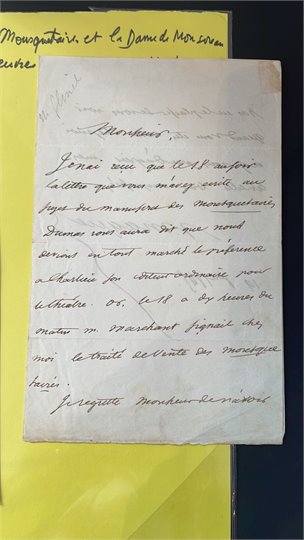 Mousquetaires et la Dame de Monsoreau
Monsieur,
Je n'ai reçu que le 18 au soir
la lettre que vous m'avez écrite au
sujet du manuscrit des mousquetaires,
Dumas vous aura dit que nous
devions en tout marché la préférence
a Charlieu son éditeur ordinaire pour
le théatre. or, le 18 a dix heures du
matin m. marchant signait chez
moi le traité de vente des mousque
taires.
Je regrette Monsieur de n'avoir